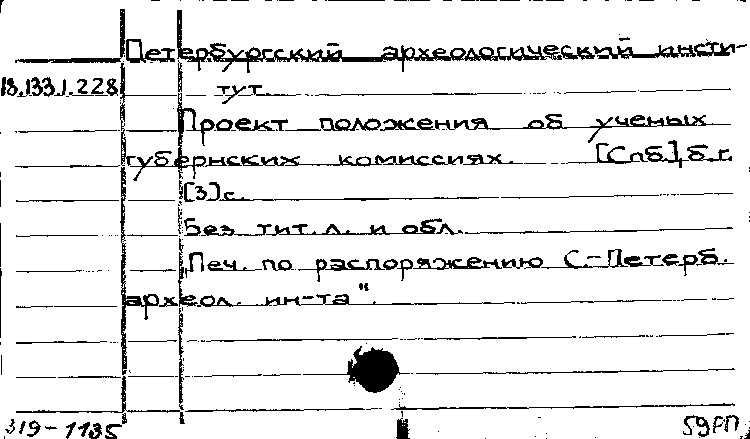 Петербургский археологический инсти-
18.133.1.228 тут.
Проект положения об ученых
губернских комиссиях. [Спб], б.г.
[3]с.
Без тит.л. и обл.
„Печ. по распоряжению С.-Петерб.
археол. ин-та".
319-1135 59РП